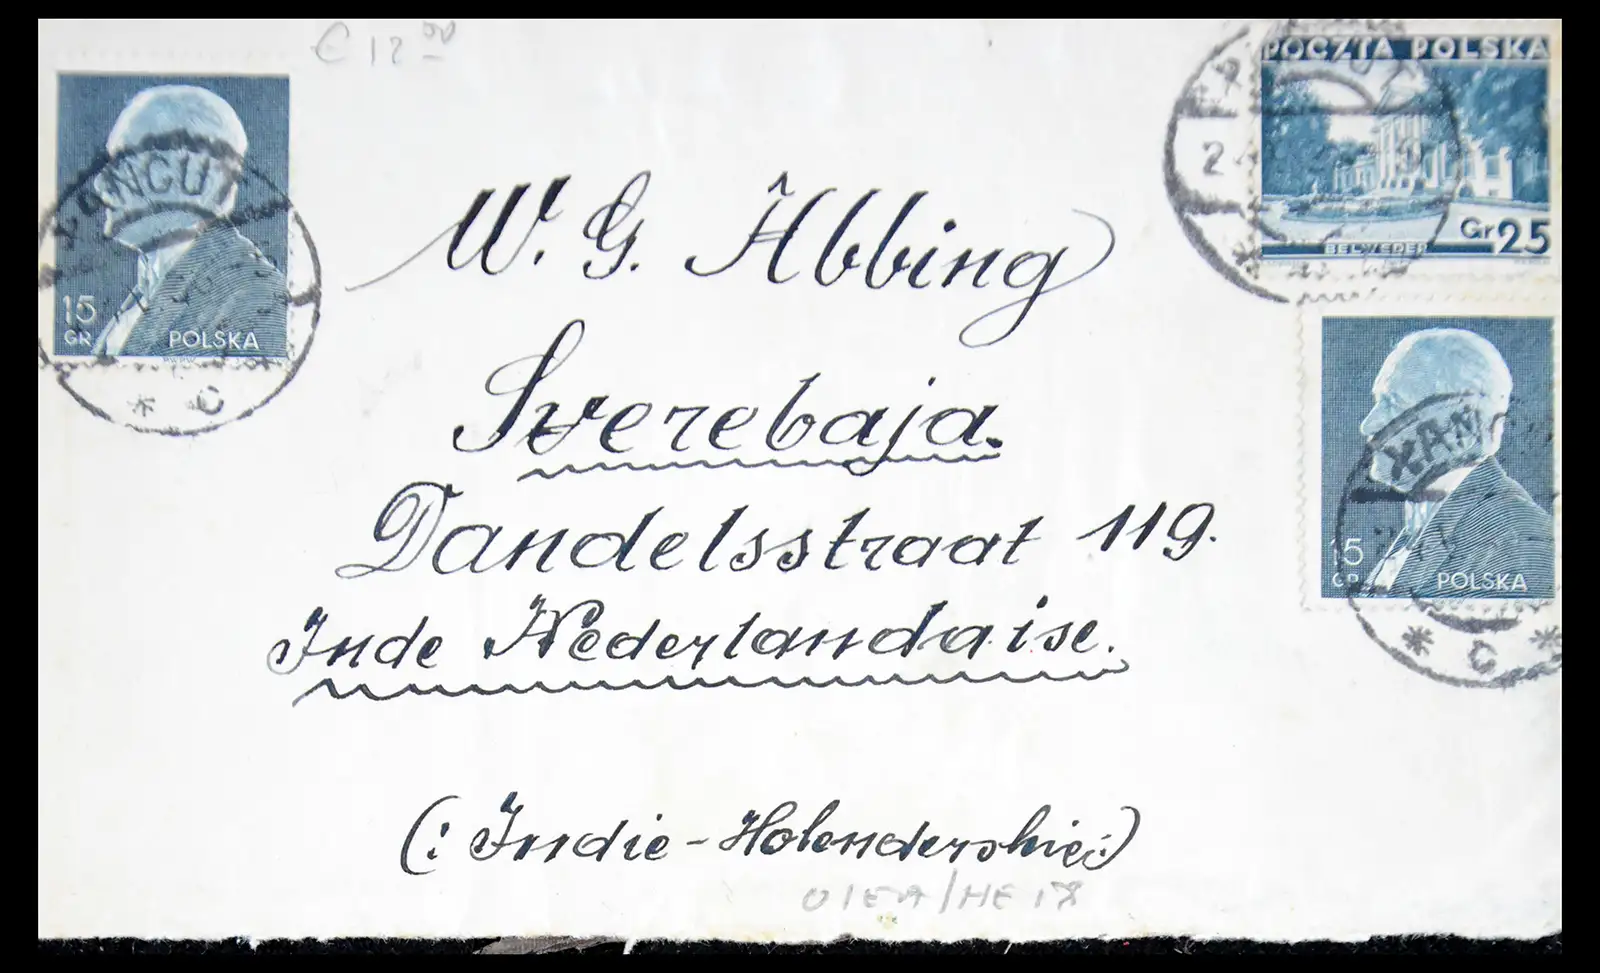 € 12 00
POCZTA POLSKA
BELWEDER
Gr 25
ŁAŃCUT
15
GR
POLSKA
* C
W. G. Abbing
Sverebaja.
Dandelsstraat 119.
Inde Nederlandaise.
(: Indie - Holenderskie :)
ŁAŃ
15
GR
POLSKA
* C *